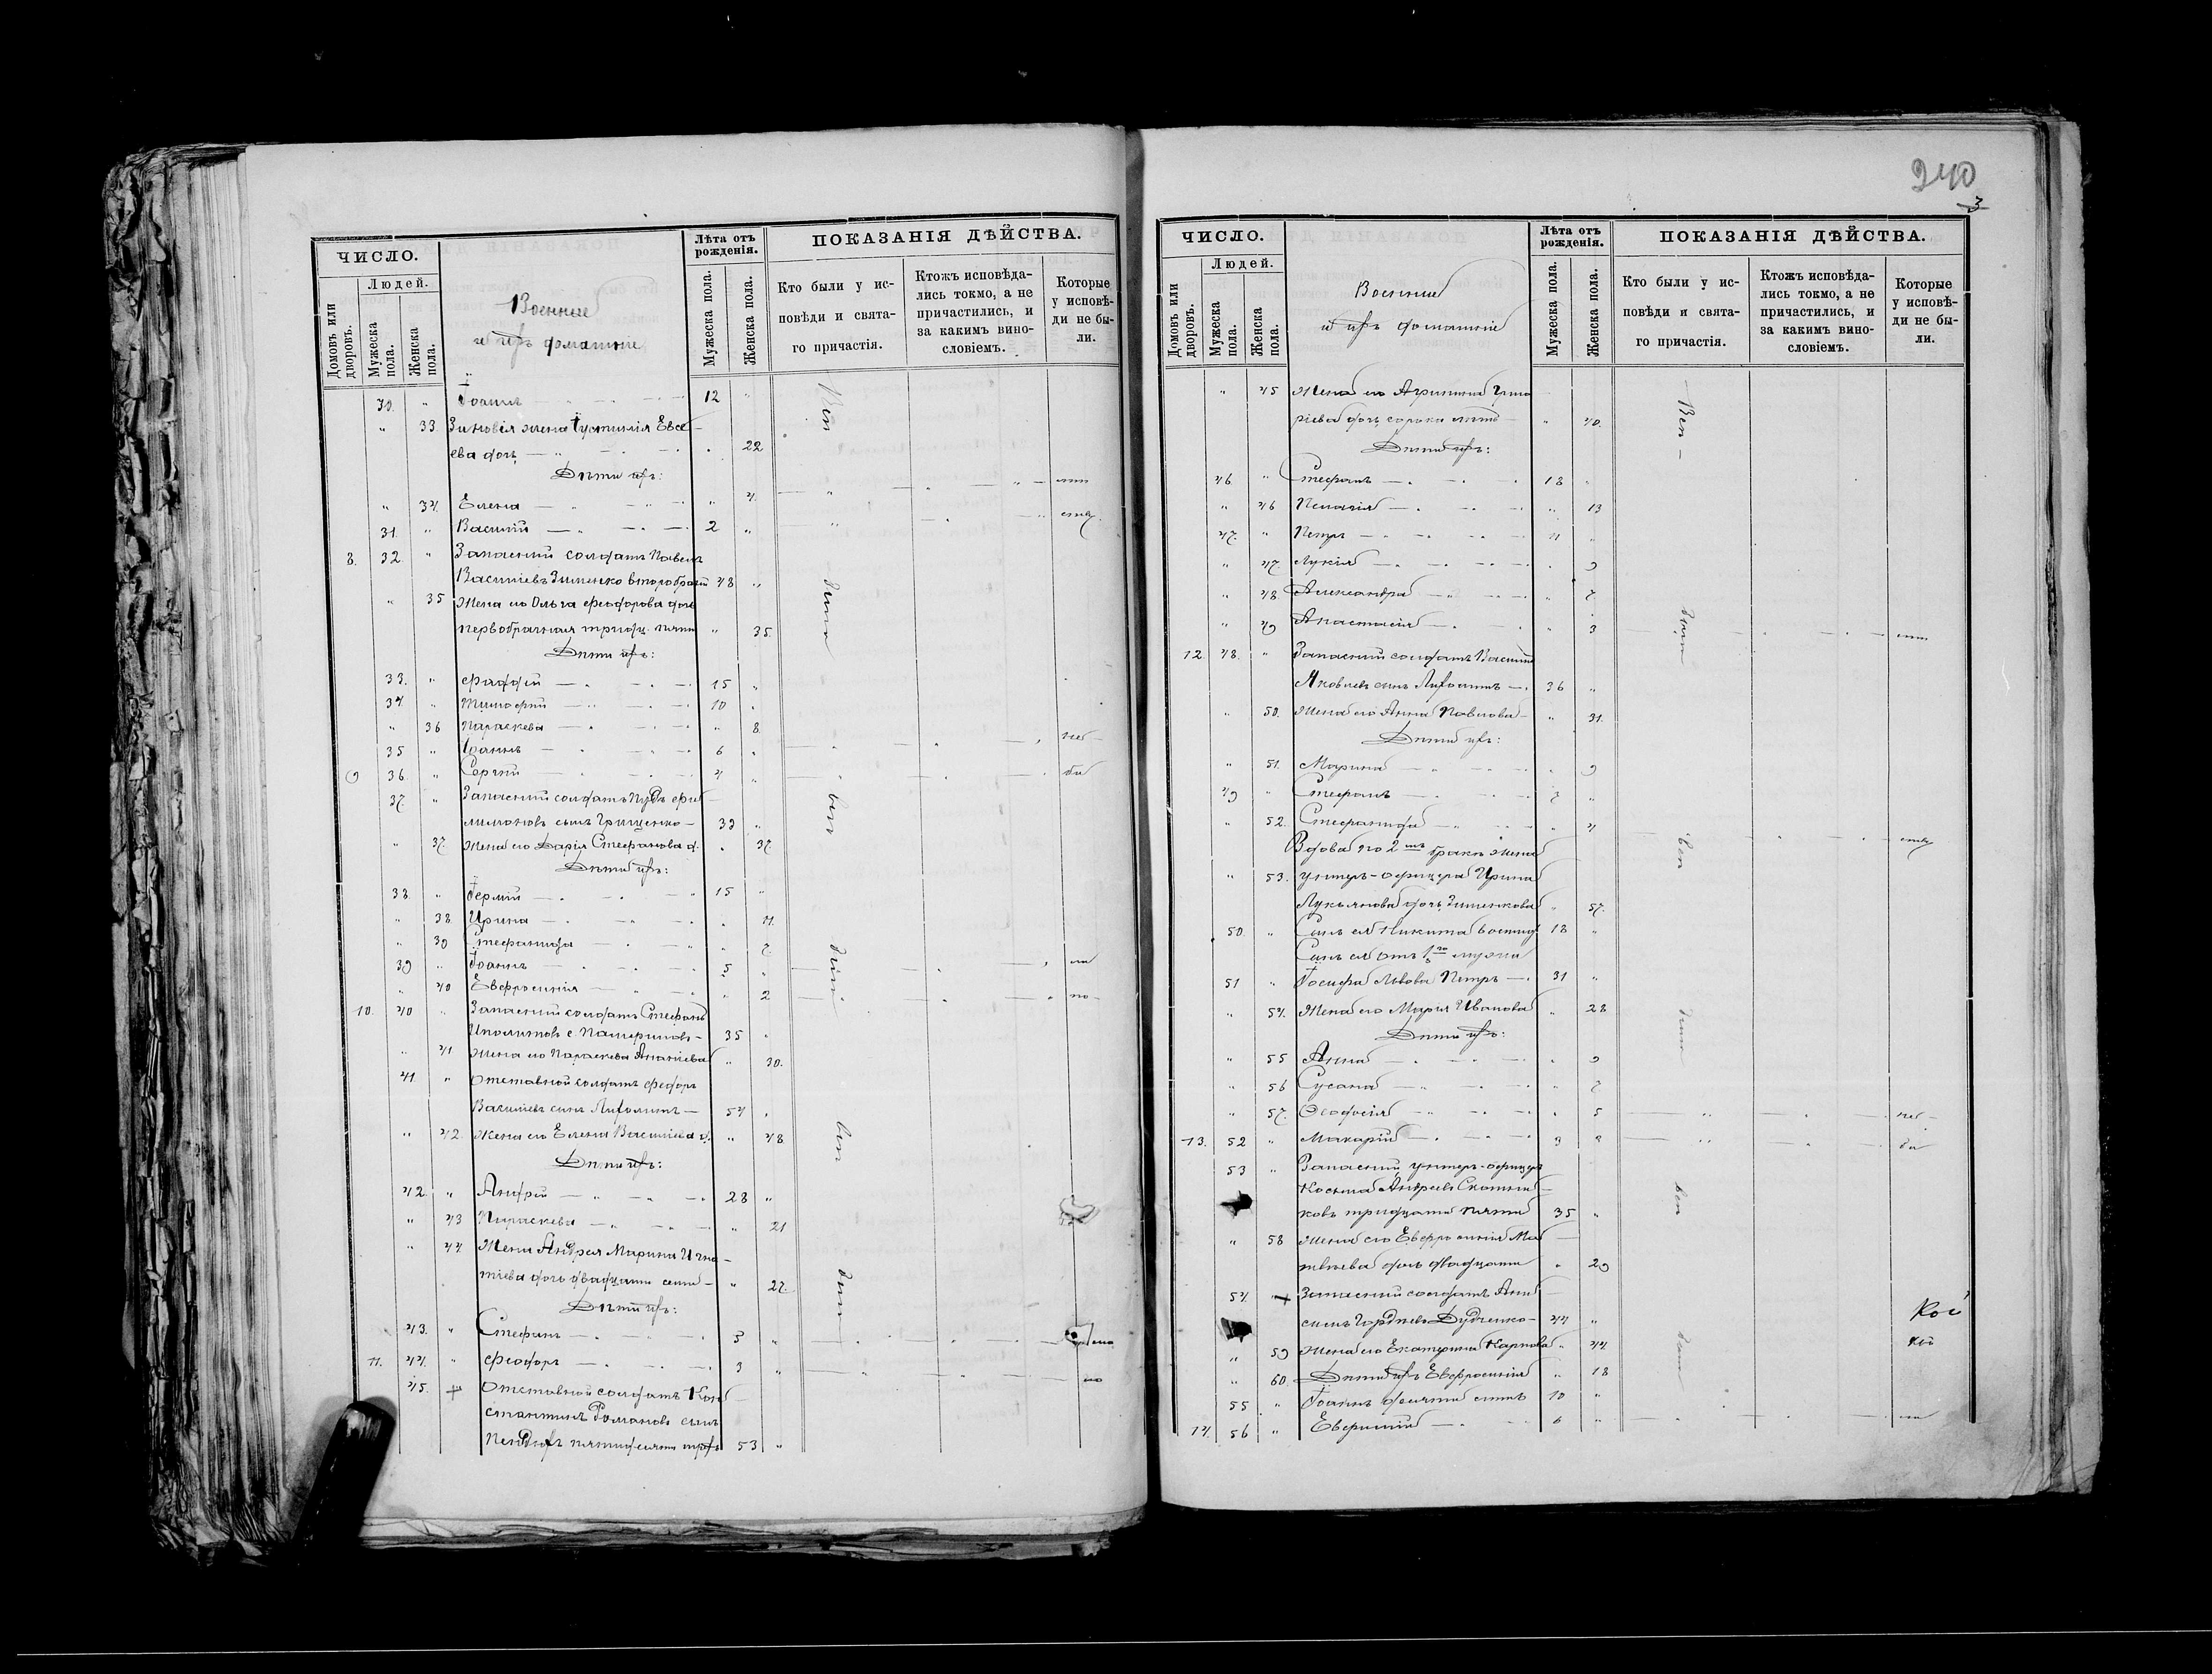 ЧИСЛО.
Людей.
Домовъ или дворовъ.
Мужеска пола.
Женска пола.
Военные
и ихъ домашніе
Лѣта отъ рожденія.
Мужеска пола.
Женска пола.
ПОКАЗАНІЯ ДѢЙСТВА.
Кто были у исповѣди и святаго причастія.
Ктожъ исповѣдались токмо, а не причастились, и за какимъ винословіемъ.
Которые у исповѣди не были.
30. " Іоаннъ 12 "
" 33 Зиновія жена Іустинія Евсе-
ева дочь " 22
Дѣти ихъ:
" 34. Елена " 4.
31. " Василій 2 "
8. 32. " Запасный солдатъ Павелъ
Василіевъ Зименко второбрачн 48 "
" 35 Жена его Ольга Феодорова дочь
первобрачная тридц. пяти " 35.
Дѣти ихъ:
33. " Фаддей 15 "
34. " Тимофей 10 "
" 36 Параскева " 8
35 " Іоаннъ 6 "
9 36. " Сергій 4 "
37. " Запасный солдатъ Пудъ Фи-
лимоновъ сынъ Грищенко 39 "
" 37. Жена его Дарія Стефанова д. " 37
Дѣти ихъ:
38. " Іермій 15 "
" 38 Ирина " 11.
" 39 Стефанида " 7
39 " Іоаннъ 5 "
" 40 Евфросинія " 2
10. 40 " Запасный солдатъ Стефанъ
Иполитовъ с. 35 "
" 41 Жена его Параскева Ананіева " 30.
41. " Отставной солдатъ Феодоръ
Василіевъ сынъ 54 "
" 42. Жена его Елена Василіева д. " 48
Дѣти ихъ:
42. " Андрей 28 "
" 43 Параскева " 21
" 44 Жена Андрея Марина Игна-
тіева дочь двадцати семи " 27.
Дѣти ихъ:
43. " Стефанъ 5 "
11. 44. " Феодоръ 3 "
45. + Отставной солдатъ Кон-
стантинъ Романовъ сынъ
пятидесяти трехъ 53 "
240
3
ЧИСЛО.
Людей.
Домовъ или дворовъ.
Мужеска пола.
Женска пола.
Военные
и ихъ домашніе
Лѣта отъ рожденія.
Мужеска пола.
Женска пола.
ПОКАЗАНІЯ ДѢЙСТВА.
Кто были у исповѣди и святаго причастія.
Ктожъ исповѣдались токмо, а не причастились, и за какимъ винословіемъ.
Которые у исповѣди не были.
" 45 Жена его Агрипина Григо
ріева дочь сорока лѣтъ " 40.
Дѣти ихъ:
46 " Стефанъ 18 "
" 46 Пелагія " 13
47. " Петръ 11 "
" 47. Лукія " 9
" 48 Александра " 7.
" 49 Анастасія " 3
12. 48. " Запасный солдатъ Василій
Яковлевъ сынъ 36 "
" 50. Жена его Анна Павлова " 31.
Дѣти ихъ:
" 51. Марина " 9
49 " Стефанъ 7 "
" 52. Стефанида " 4
Вдова по 2мъ бракѣ жена
" 53. унтеръ-офицера Ирина
Лукьянова дочь Зименкова " 57.
50. " Сынъ ея Никита 18 "
Сынъ ея отъ 1го мужа
51 " Іосифа Львова Петръ 31 "
" 54. Жена его Марія Иванова " 28
Дѣти ихъ:
" 55 Анна " 9
" 56 Сусана " 7
" 57. Феодосія " 5
13. 52 " Макарій 3 "
53 " Запасный унтеръ-офицеръ
Косьма Андреевъ
ковъ тридцати пяти 35 "
" 58 Жена его Евфросинія Ма
твѣева дочь двадцати " 29
54. + Запасный солдатъ
сынъ Гордѣевъ Дудченко 44 "
" 59 Жена его Екатерина Карпова " 44.
" 60. Дѣти ихъ Евфросинія " 18
55 " Іоаннъ десяти лѣтъ 10 "
14. 56 " 6 "